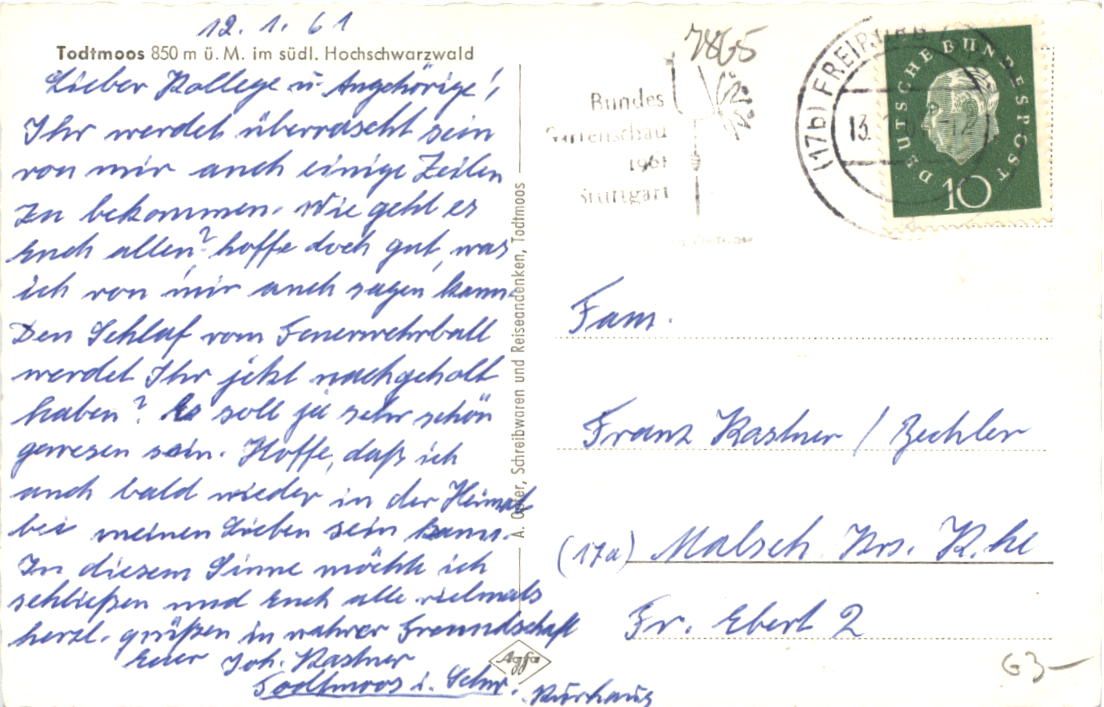 12.1.61
Todtmoos 850 m ü. M. im südl. Hochschwarzwald
Lieber Kollege u. Angehörige!
Ihr werdet überrascht sein
von mir auch einige Zeilen
zu bekommen. Wie geht es
Euch allen? hoffe doch gut, was
ich von mir auch sagen kann.
Den Schlaf vom Feuerwehrball
werdet Ihr jetzt nachgeholt
haben? Es soll ja sehr schön
gewesen sein. Hoffe, daß ich
auch bald wieder in der Heimat
bei meinen Lieben sein kann.
In diesem Sinne möchte ich
schließen und Euch alle vielmals
herzl. grüßen in wahrer Freundschaft
Euer Joh. Kastner
Todtmoos i. Schw. Kurhaus
Schreibwaren und Reiseandenken, Todtmoos
Agfa
7865
Bundes
Gartenschau
1961
Stuttgart
(17b) FREIBURG
13.
DEUTSCHE BUNDESPOST
10
Fam.
Franz Kastner / Bechler
(17a) Malsch Krs. K.he
Fr. Ebert 2
G3-